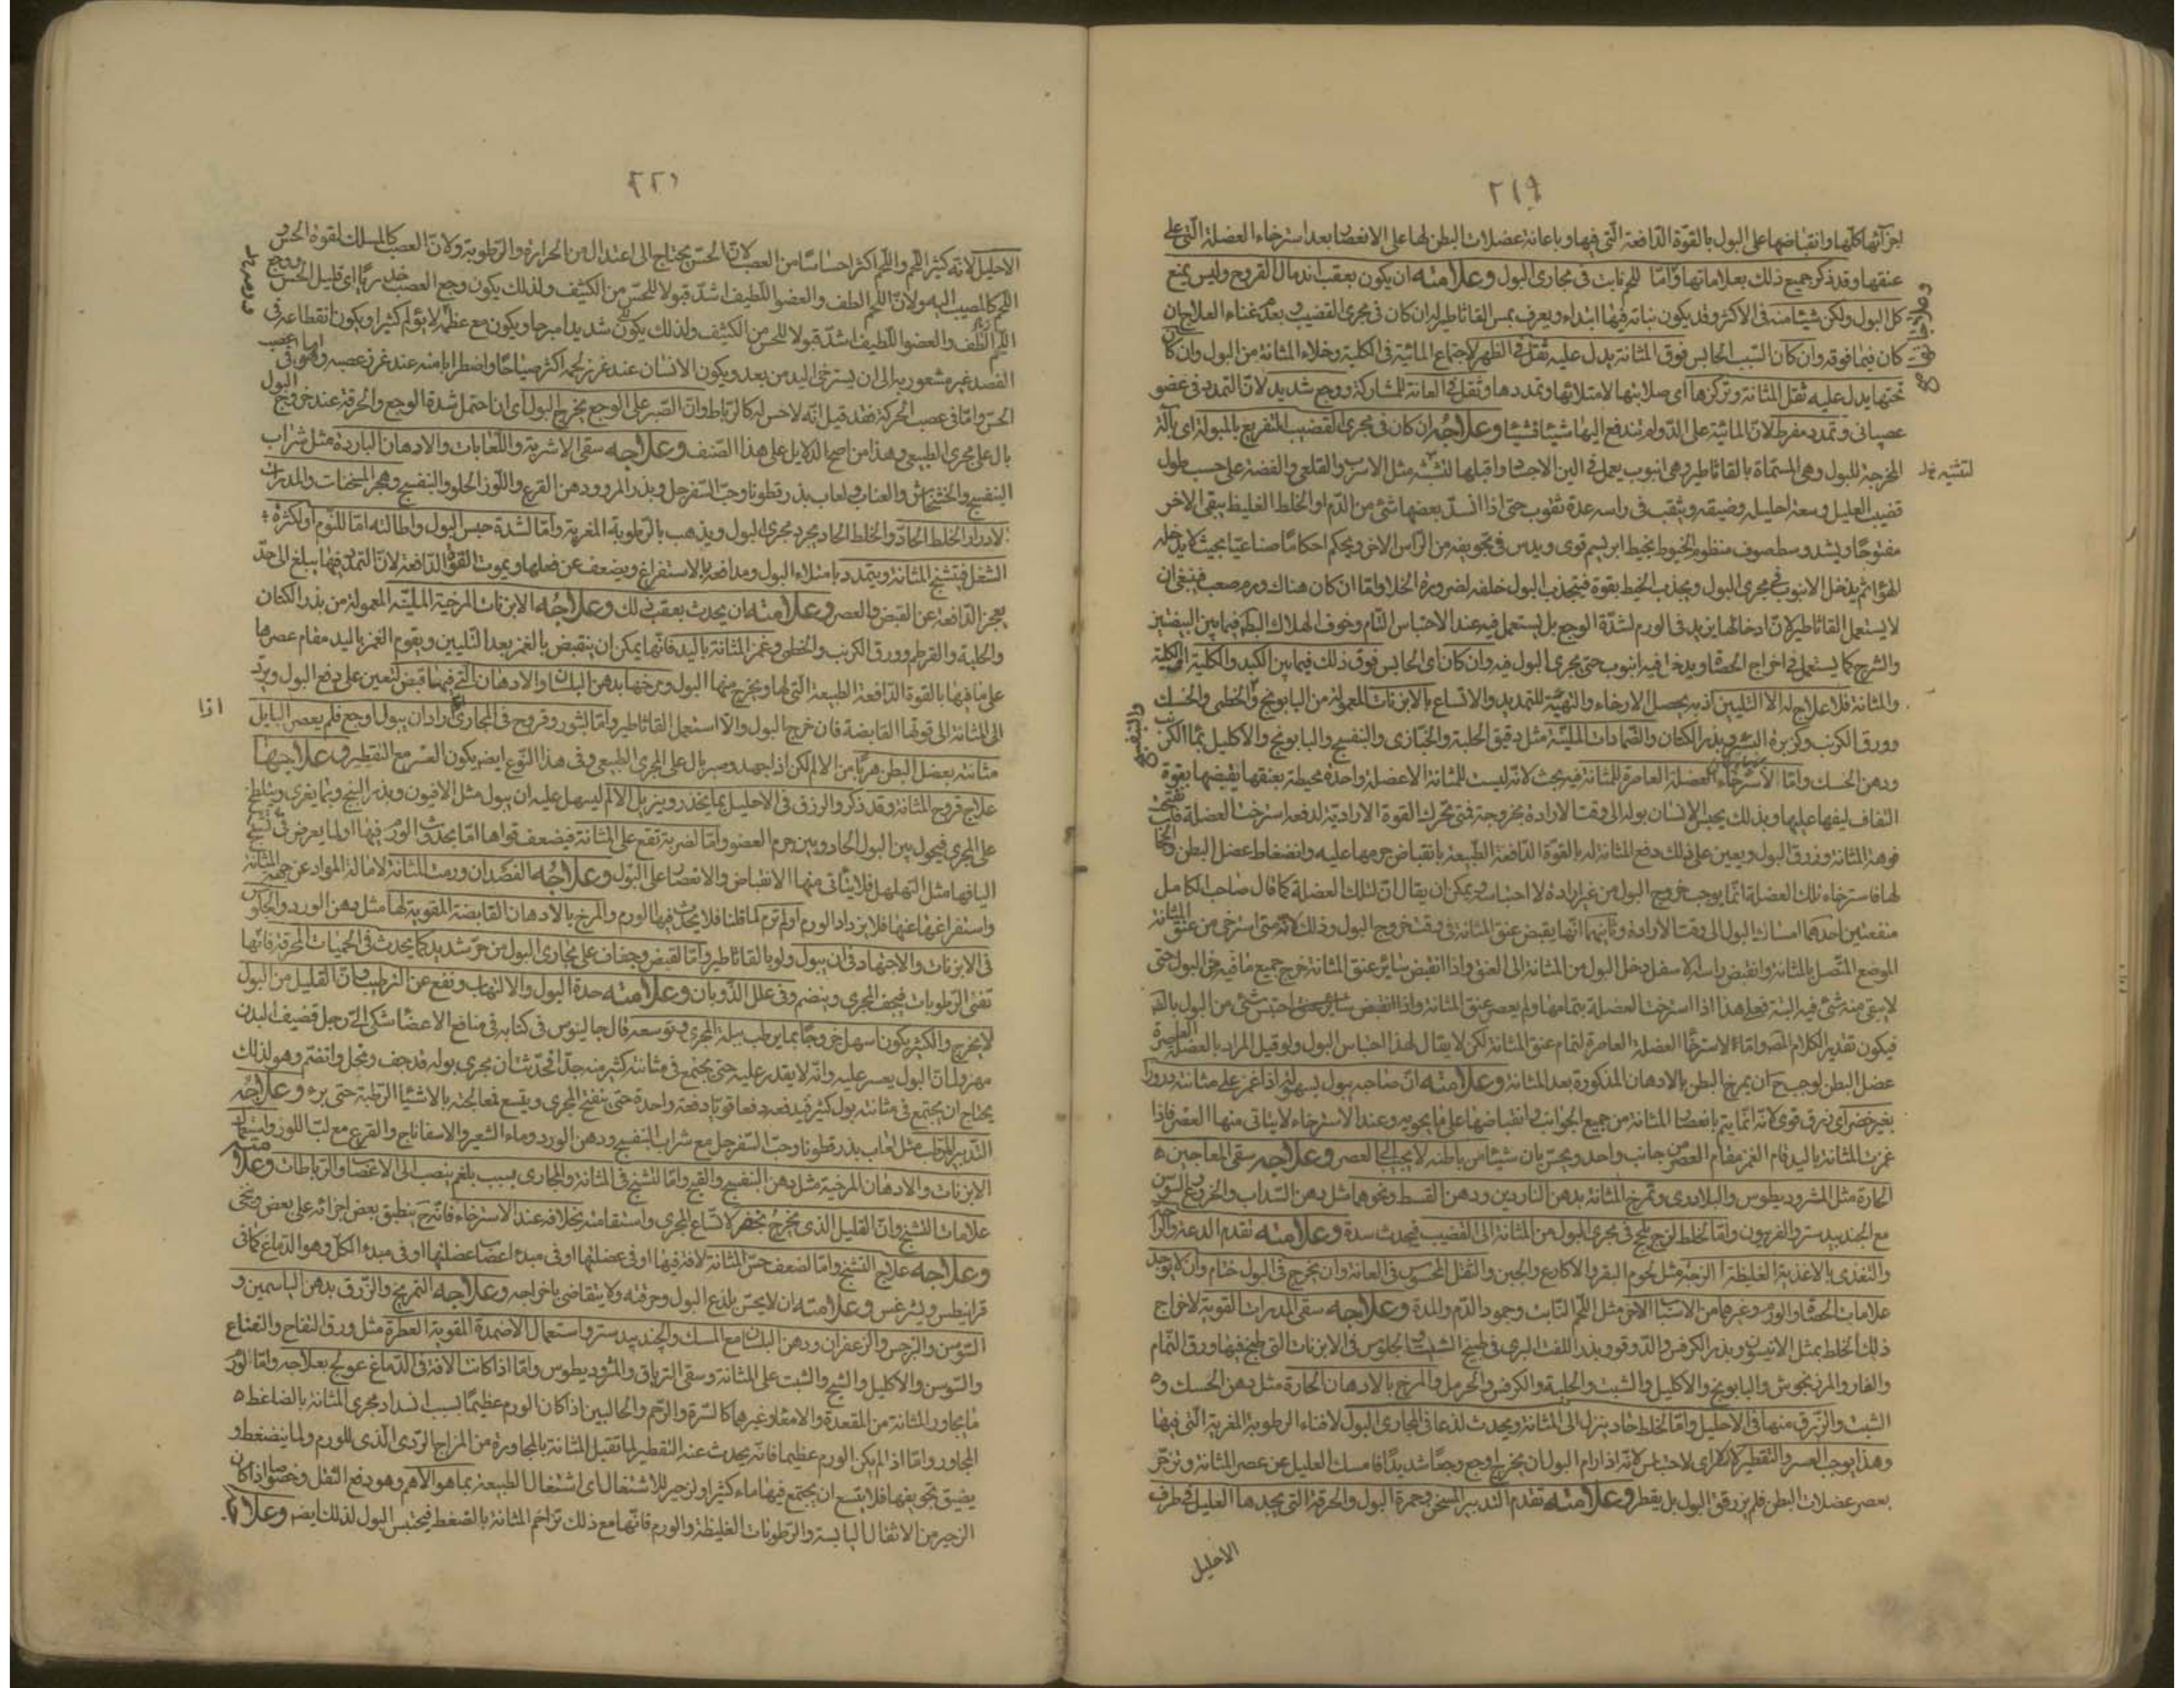 ٢١٩
اجزائها كلّها وانقباضها على البول بالقوّة الدّافعة الّتى فيها وباعانة عضلات البطن لها على الانعصار بعد استرخاء العضلة الّتى على
عنقها وقد ذكر جميع ذلك بعلاماتها وامّا للحم نابت فى مجارى البول وعلامته ان يكون بعقب اندمال القروح وليس يمنع
كل البول ولكن شيئا منه فى الاكثر وقد يكون نباته فيها ابتداء ويعرف بمس القاثاطير ان كان فى مجرى القضيب وبعد غناء العلاج ان
كان فيما فوقه وان كان السّبب الحابس فوق المثانة يدل عليه ثقل فى الظهر لاجتماع المائية فى الكلية وخلاء المثانة من البول وان كان
تحتها يدل عليه ثقل المثانة وتركزها اى صلابتها لامتلائها وتمددها وثقل فى العانة للمشاركة ووجع شديد لانّ التمدد فى عضو
عصبانى وتمدد مفرط لانّ المائية على الدّوام تندفع اليها شيئا فشيئا وعلاجه ان كان فى مجرى القضيب التفريغ بالمبولة اى بالآلة
المخرجة للبول وهى المسمّاة بالقاثاطير وهى انبوب يعمل من الين الاجساد واقبلها للتثنية مثل الاسرب والقلعى والفضة على حسب طول
قضيب العليل وسعة احليله وضيقه ويثقب فى راسه عدة ثقوب حتى اذا انسدّ بعضها شئ من الدّم او الخلط الغليظ يبقى الاخر
مفتوحًا ويشد وسط صوف منظوم الخيوط بخيط ابريسم قوى ويدس فى تجويفه من الرّاس الاخر ويحكم احكامًا صناعيّا بحيث لا يدخله
الهواء ثم يدخل الانبوب فى مجرى البول ويجذب الخيط بقوة فيتجذب البول خلفه لضرورة الخلا وامّا ان كان هناك ورم صعب فينبغى ان
لا يستعمل القاثاطير لانّ ادخالها يزيد فى الورم لشدّة الوجع بل يستعمل فيه عند الاحتباس التّام وخوف الهلاك البط فيما بين البيضتين
والشرج كما يستعمل فى اخراج الحصاة ويدخل فيه انبوب حتى مجرى البول فيه وان كان اى الحابس فوق ذلك فيما بين الكبد والكلية او الكلية
والمثانة فلا علاج له الا التليين اذ به يحصل الارخاء والتهيئة للتمديد والاتساع بالابزنات المعمولة من البابونج والخطمى والحسك
وورق الكرنب وكزبرة البئر وبذر الكتان والضّمادات المليّنة مثل دقيق الحلبة والخبّازى والبنفسج والبابونج والاكليل
ودهن الحسك وامّا لاسترخاء العضلة العاصرة للمثانة فيه بحث لانّه ليست للمثانة الا عضلة واحدة محيطة بعنقها يقبضها بقوة
التفاف ليفها عليها وبذلك يحبس الانسان بوله الى وقت الارادة بخروجه فتى تحرك القوة الاراديّة لدفعه استرخت العضلة
فوهة المثانة وزرق البول ويعين على ذلك دفع المثانة له بالقوة الدّافعة الطّبيعية بانقباض جرمها عليه وانضغاط عضل البطن
لها فاسترخاء تلك العضلة انّما يوجب خروج البول من غير ارادة لا احتباسه ويمكن ان يقال انّ لتلك العضلة كما قال صاحب الكامل
منفعتين احدهما امساك البول الى وقت الارادة وثانيهما انّها يقبض عنق المثانة فى وقت خروج البول وذلك لانّه متى استرخى من عنق المثانة
الموضع المتّصل بالمثانة وانقبض راسه الاسفل دخل البول من المثانة الى العنق واذا انقبض سائر عنق المثانة خرج جميع ما فيه من البول حتى
لا يبقى منه شئ فيه البتة فعلى هذا اذا استرخت العضلة بتمامها ولم يعصر عنق المثانة احتبس شئ من البول
فيكون تقدير الكلام امّا لاسترخاء العضلة العاصرة لتمام عنق المثانة لكن لا يقال لهذا احتباس البول ولو قيل المراد بالعضلة العاصرة
عضل البطن لوجب ح ان يمرخ البطن بالادهان المذكورة بعد المثانة وعلامته انّ صاحبه يبول بسهولة اذا غمز على مثانته
بغير حصر اى زرق قوى لانّه انّما يتم بانعصار المثانة من جميع الجوانب وانقباضها على ما يحويه وعند الاسترخاء لا يتاتى منها العصر فاذا
غمزت المثانة باليد قام الغمز مقام العصر من جانب واحد ويحسّ بان شيئا من باطنه لا يجيب الى العصر وعلاجه سقى المعاجين
الحارة مثل المثروديطوس والبلادرى وتمرخ المثانة بدهن الناردين ودهن القسط ونحوها مثل دهن السّداب والخروع
مع الجندبيدستر والفربيون وامّا لخلط لزج يلج فى مجرى البول من المثانة الى القضيب فيحدث سدة وعلامته تقدم الدعة
والتغذى بالاغذية الغليظة اللزجة مثل لحوم البقر والاكارع والجبن والثقل المحسوس فى العانة وان يخرج فى البول خام وان لا يوجد
علامات الحصاة والورم وغيرها من الاسباب الاخر مثل اللّحم النّابت وجمود الدّم والمدة وعلاجه سقى المدرات القوية لاخراج
ذلك الخلط بمثل الانيسون وبذر الكرفس والدّوقو وبذر اللفت البرى فى طبيخ الشبت والجلوس فى الابزنات التى طبخ فيها ورق النّمام
والغار والمرزنجوش والبابونج والاكليل والشبت والحلبة والكرفس والحرمل والمرخ بالادهان الحارة مثل دهن الحسك و
الشبت والزّرق منها فى الاحليل وامّا لخلط حاد ينزل الى المثانة ويحدث لذعا فى المجارى البول لافناء الرطوبة المغرية الّتى فيها
وهذا يوجب العسر والتقطير لا الاحتباس لانّه اذا رام البول ان يخرج اوجع وجعًا شديدًا فامسك العليل عن عصر المثانة
بعصر عضلات البطن فلم يزرق البول بل يقطر وعلامته تقدم التدبير المسخن وحمرة البول والحرقة التى يجدها العليل فى طرف
الاحليل
لتثنيه نخ
والبنفسج
٢٢١
الاحليل لانّه كثير اللّحم واللّحم اكثر احساسًا من العصب لانّ الحسّ يحتاج الى اعتدال من الحرارة والرّطوبة ولانّ العصب كالمسلك لقوة الحسّ و
اللّحم كالمصب اليه ولانّ اللّحم الطف والعضو اللّطيف اشدّ قبولا للحسّ من الكثيف ولذلك يكون وجع العصب خدريّا اى قليل الحسّ ووجع
اللّحم الطف والعضو اللّطيف اشدّ قبولا للحسّ من الكثيف ولذلك يكون شديدا مبرحا ويكون مع عظمه لا يؤلم كثيرا ويكون انقطاعه فى
الفصد غير مشعور به الى ان يسترخى اليد من بعد ويكون الانسان عند غرز لحمه اكثر صياحًا واضطرابا منه عند غرز عصبه
الحسّ وامّا فى عصب الحركة فقد قيل انّه لا حس له كالرّباط وانّ الصّبر على الوجع يخرج البول اى ان احتمل شدة الوجع والحرقة عند خروج البول
بال على مجرى الطبيعى وهذا من اصح الدلايل على هذا الصّنف وعلاجه سقى الاشربة واللّعابات والادهان الباردة مثل شراب
البنفسج والخشخاش والعناب ولعاب بذر قطونا وحبّ السّفرجل وبذر المرو ودهن القرع واللّوز الحلو والبنفسج وهجر المسخنات والمدرات
لادرار الخلط الحادّ والخلط الحاد يجرد مجرى البول ويذهب بالرّطوبة المغرية وامّا لشدة حبس البول واطالته امّا للنّوم او لكثرة
الشغل فتشنج المثانة ويتمدد بامتلاء البول ومدافعة بالاستفراغ ويضعف عن فعلها ويموت القوّة الدّافعة لانّ التمدد فيها يبلغ الى حدّ
يعجز الدّافعة عن القبض والعصر وعلامته ان يحدث بعقب ذلك وعلاجه الابزنات المرخية المليّنة المعمولة من بذر الكتان
والحلبة والقرطم وورق الكرنب والخطمى وغمز المثانة باليد فانّها يمكن ان ينقبض بالغمز بعد التليين ويقوم الغمز باليد مقام عصرها
على ما فيها بالقوة الدّافعة الطبيعة الّتى لها ويخرج منها البول ومرخها بدهن البلسان والادهان الّتى فيها قبض لتعين على دفع البول ويرد
الى المثانة الى قوتها القابضة فان خرج البول والا استعمل القاثاطير وامّا لبثور وقروح فى المجارى اراد ان يبول اوجع فلم يعصر البايل
مثانته بعضل البطن هربًا من الالم لكن اذ اجهد وصبر بال على المجرى الطبيعى وفى هذا النّوع ايضا يكون العسر مع التقطير وعلاجها
علاج قروح المثانة وقد ذكر والزرق فى الاحليل بما يخدر ويزيل الالم ليسهل عليه ان يبول مثل الافيون وبذر البنج وبما يغرى ويلطخ
على المجرى فيحول بين البول الحاد وبين جرم العضو وامّا لضربة تقع على المثانة فيضعف قواها امّا يحدث الورم فيها او لما يعرض فى نسج
اليافها مثل التهلهل فلا يتاتى منها الانقباض والانعصار على البول وعلاجه الفصد ان ورمت المثانة لامالة المواد عن جهة المثانة
واستفراغها عنها فلا يزداد الورم او لم ترم لما قلنا فلا يحدث فيها الورم والمرخ بالادهان القابضة المقوية لها مثل دهن الورد والجلوس
فى الابزنات والاجتهاد فى ان يبول ولو بالقاثاطير وامّا لقبض وجفاف على مجارى البول من حرّ شديد كما يحدث فى الحميات المحرقة فانّها
تفنى الرّطوبات فيجف المجرى وينضم وفى علل الذّوبان وعلامته حدة البول والالتهاب ونفع عن الترطيب وانّ القليل من البول
لا يخرج والكثير يكون اسهل خروجًا بما يرطب ببلة المجرى ويوسعه قال جالينوس فى كتابه فى منافع الاعضا شكى الىّ رجل قضيف البدن
مهزول انّ البول يعسر عليه وانّه لا يقدر عليه حتى يجتمع فى مثانته كثير منه جدّا فحدثت ان مجرى بوله قد جف وقحل وانضمّ وهو لذلك
يحتاج ان يجتمع فى مثانته بول كثير فيدفعه دفعا قويّا دفعة واحدة حتى ينفتح المجرى ويتسع فعالجته بالاشيا الرّطبة حتى برء وعلاجه
التّدبير المرطب مثل لعاب بذر قطونا وحبّ السّفرجل مع شراب البنفسج ودهن الورد وماء الشعير والاسفاناج والقرع مع لبّ اللوز
الابزنات والادهان المرخية مثل دهن البنفسج والقرع وامّا لتشنج فى المثانة والمجارى بسبب بلغم ينصب الى الاعصاب والرّباطات وعلامته
علامات التشنج وانّ القليل الذى يخرج يخرج لاتّساع المجرى واستقامته بخلافه عند الاسترخاء فانّه ح ينطبق بعض اجزائه على بعض
وعلاجه علاج التشنج وامّا لضعف حسّ المثانة لافة فيها او فى عضلتها او فى مبدء اعصاب عضلتها او فى مبدء الكل وهو الدّماغ كما فى
قرانيطس وليثرغس وعلامته ان لا يحسّ بلذع البول وحرقته ولا يتقاضى باخراجه وعلاجه التمريخ والزّرق بدهن الياسمين و
السّوسن والنّرجس والزعفران ودهن البلسان مع المسك والجندبيدستر واستعمال الاضمدة المقوية العطرة مثل ورق التفاح والنعناع
والسّوسن والاكليل والشيح والشبت على المثانة وسقى الترياق والمثروديطوس وامّا اذا كانت الافة فى الدّماغ عولج بعلاجه وامّا لورم
ما يجاور المثانة من المقعدة والامعاء وغيرها كالسّرة والرّحم والحالبين اذا كان الورم عظيمًا بسبب انسداد مجرى المثانة بالضاغط
المجاور وامّا اذا لم يكن الورم عظيما فانّه يحدث عنه التقطير لما تقبل المثانة بالمجاورة من المزاج الرّدى الّذى للورم ولما ينضغط و
يضيق تجويفها فلا يتسع ان يجتمع فيها ماء كثير او لزحير للاشتغال اى اشتغال الطبيعة بما هو الاهم وهو دفع الثفل وخصوصا اذا كان
الزحير من الاثفال اليابسة والرّطوبات الغليظة والورم فانّها مع ذلك تزاحم المثانة بالضغط فيحتبس البول لذلك ايضا
اذا